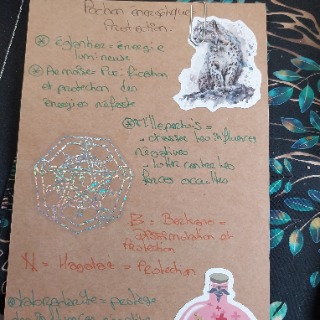 Pochon énergétique
Protection.
Eglantier = énergie
lumineuse
Armoise = Purification
et protection des
énergies néfaste
Millepertuis =
- chasser les influences
négatives
- lutter contre les
forces occultes
B = Berkano =
et
protection
N = Hagalaz = Protection